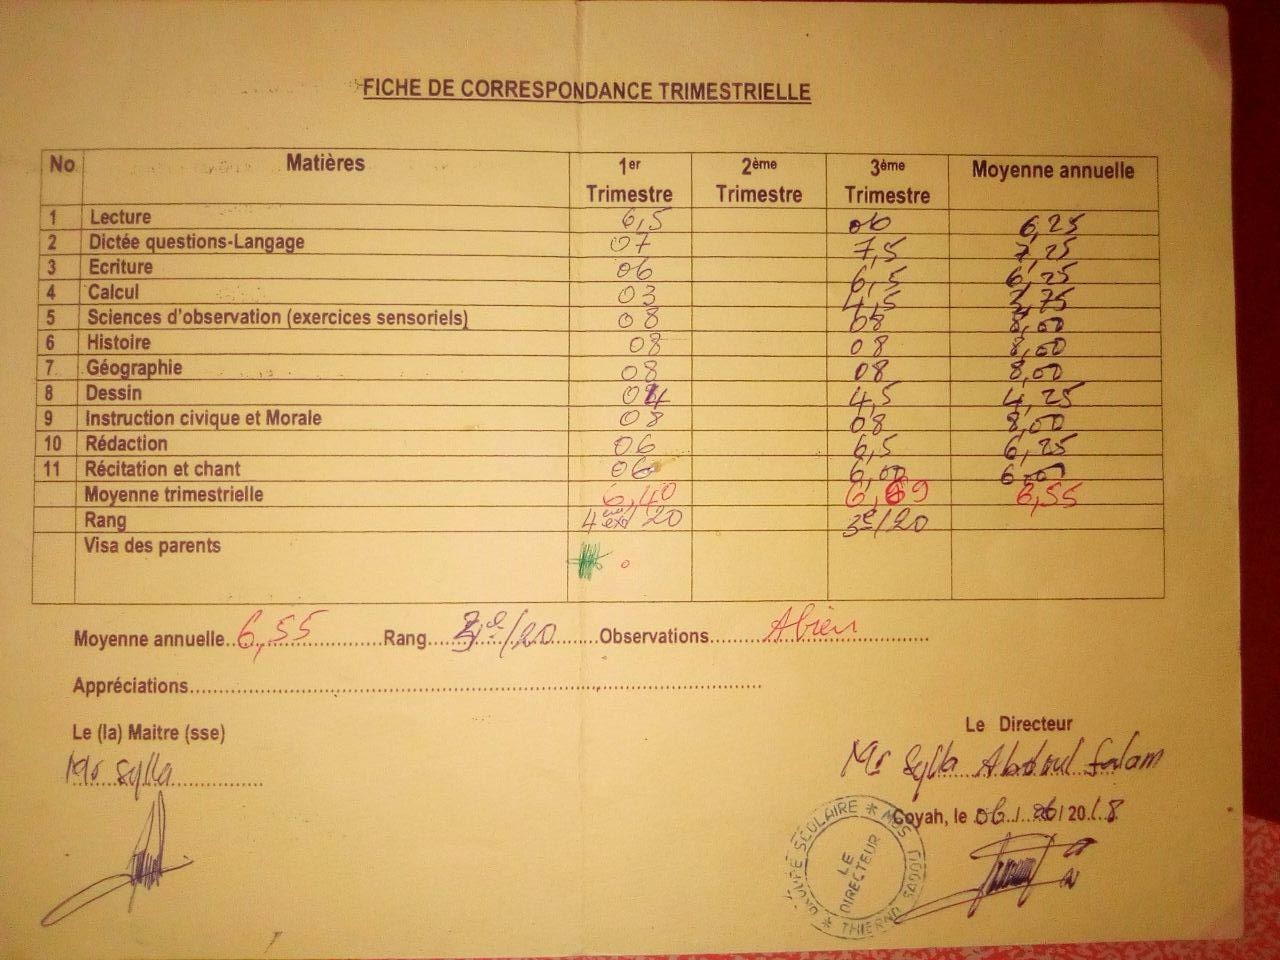 FICHE DE CORRESPONDANCE TRIMESTRIELLE
No Matières 1er Trimestre 2ème Trimestre 3ème Trimestre Moyenne annuelle
1 Lecture 6,5 06 6,25
2 Dictée questions-Langage 07 7,5 7,25
3 Ecriture 06 6,5 6,25
4 Calcul 03 4,5 3,75
5 Sciences d'observation (exercices sensoriels) 08 08 8,00
6 Histoire 08 08 8,00
7 Géographie 08 08 8,00
8 Dessin 04 4,5 4,25
9 Instruction civique et Morale 08 08 8,00
10 Rédaction 06 6,5 6,25
11 Récitation et chant 06 6,00 6,00
Moyenne trimestrielle 6,40 6,69 6,55
Rang 4ème exo/20 3e/20
Visa des parents
Moyenne annuelle 6,55 Rang /20 Observations Abien
Appréciations
Le (la) Maitre (sse)
Mr Sylla
Le Directeur
Mr Sylla Abdoul Salam
Coyah, le 06/06/2018
GROUPE SCOLAIRE * MGS THIERNO SADOU *
LE DIRECTEUR